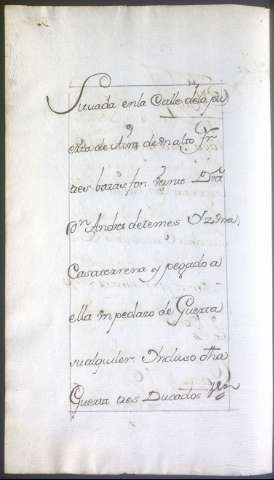 Situada enla Calle dela pu
erta de Arna de un alto
tres baras fon Veinte
on Andres de temes
Casaterrena y pegado a
ella un pedazo de Guerta
sualquiler Incluso dha
Guerta tres Ducados